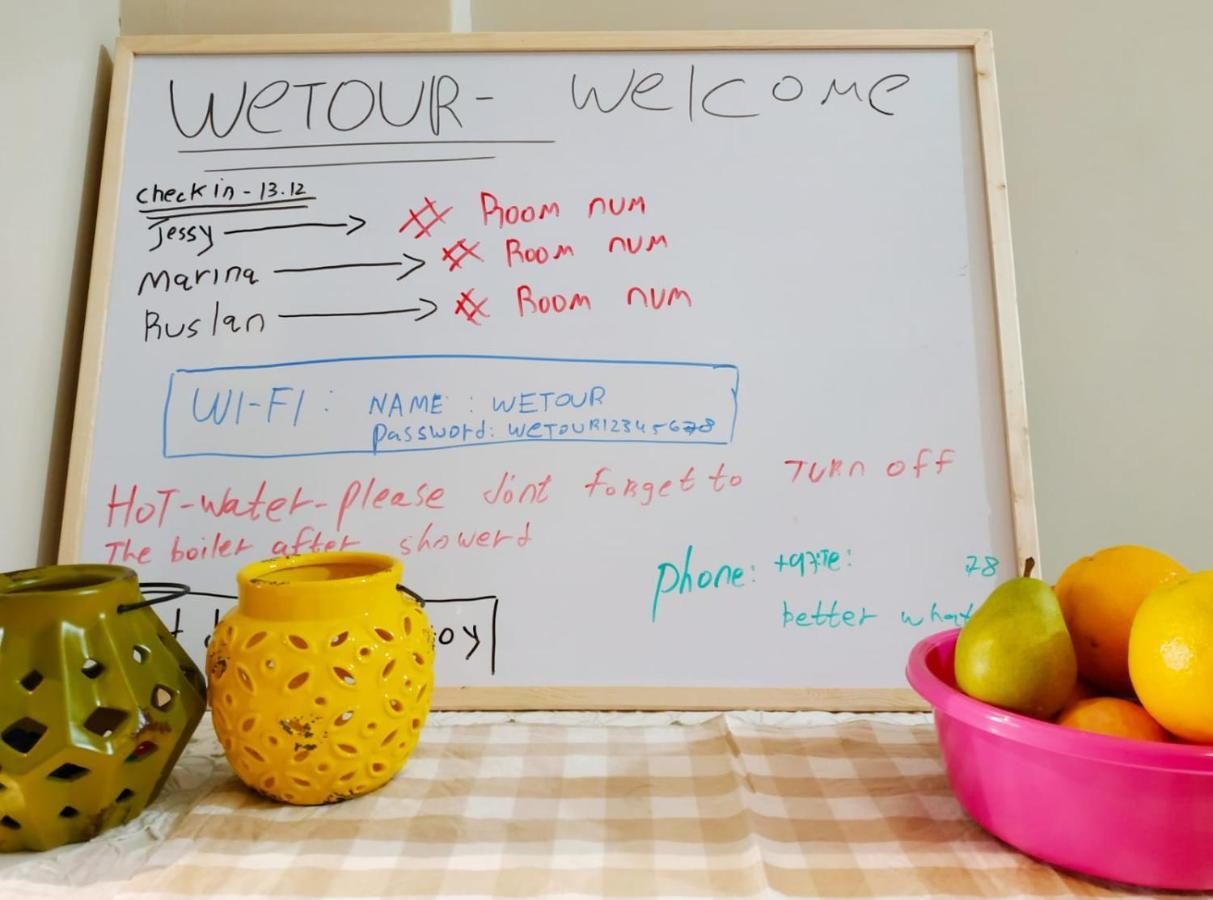 WeTOUR- Welcome
Check in - 13.12
Jessy → # Room num
Marina → # Room num
Ruslan → # Room num
WI-FI: NAME: WETOUR
Password: WeTOUR12345678
HOT-Water-Please dont forget to TURN off
The boiler after showerd
Phone: 78
better what
oy